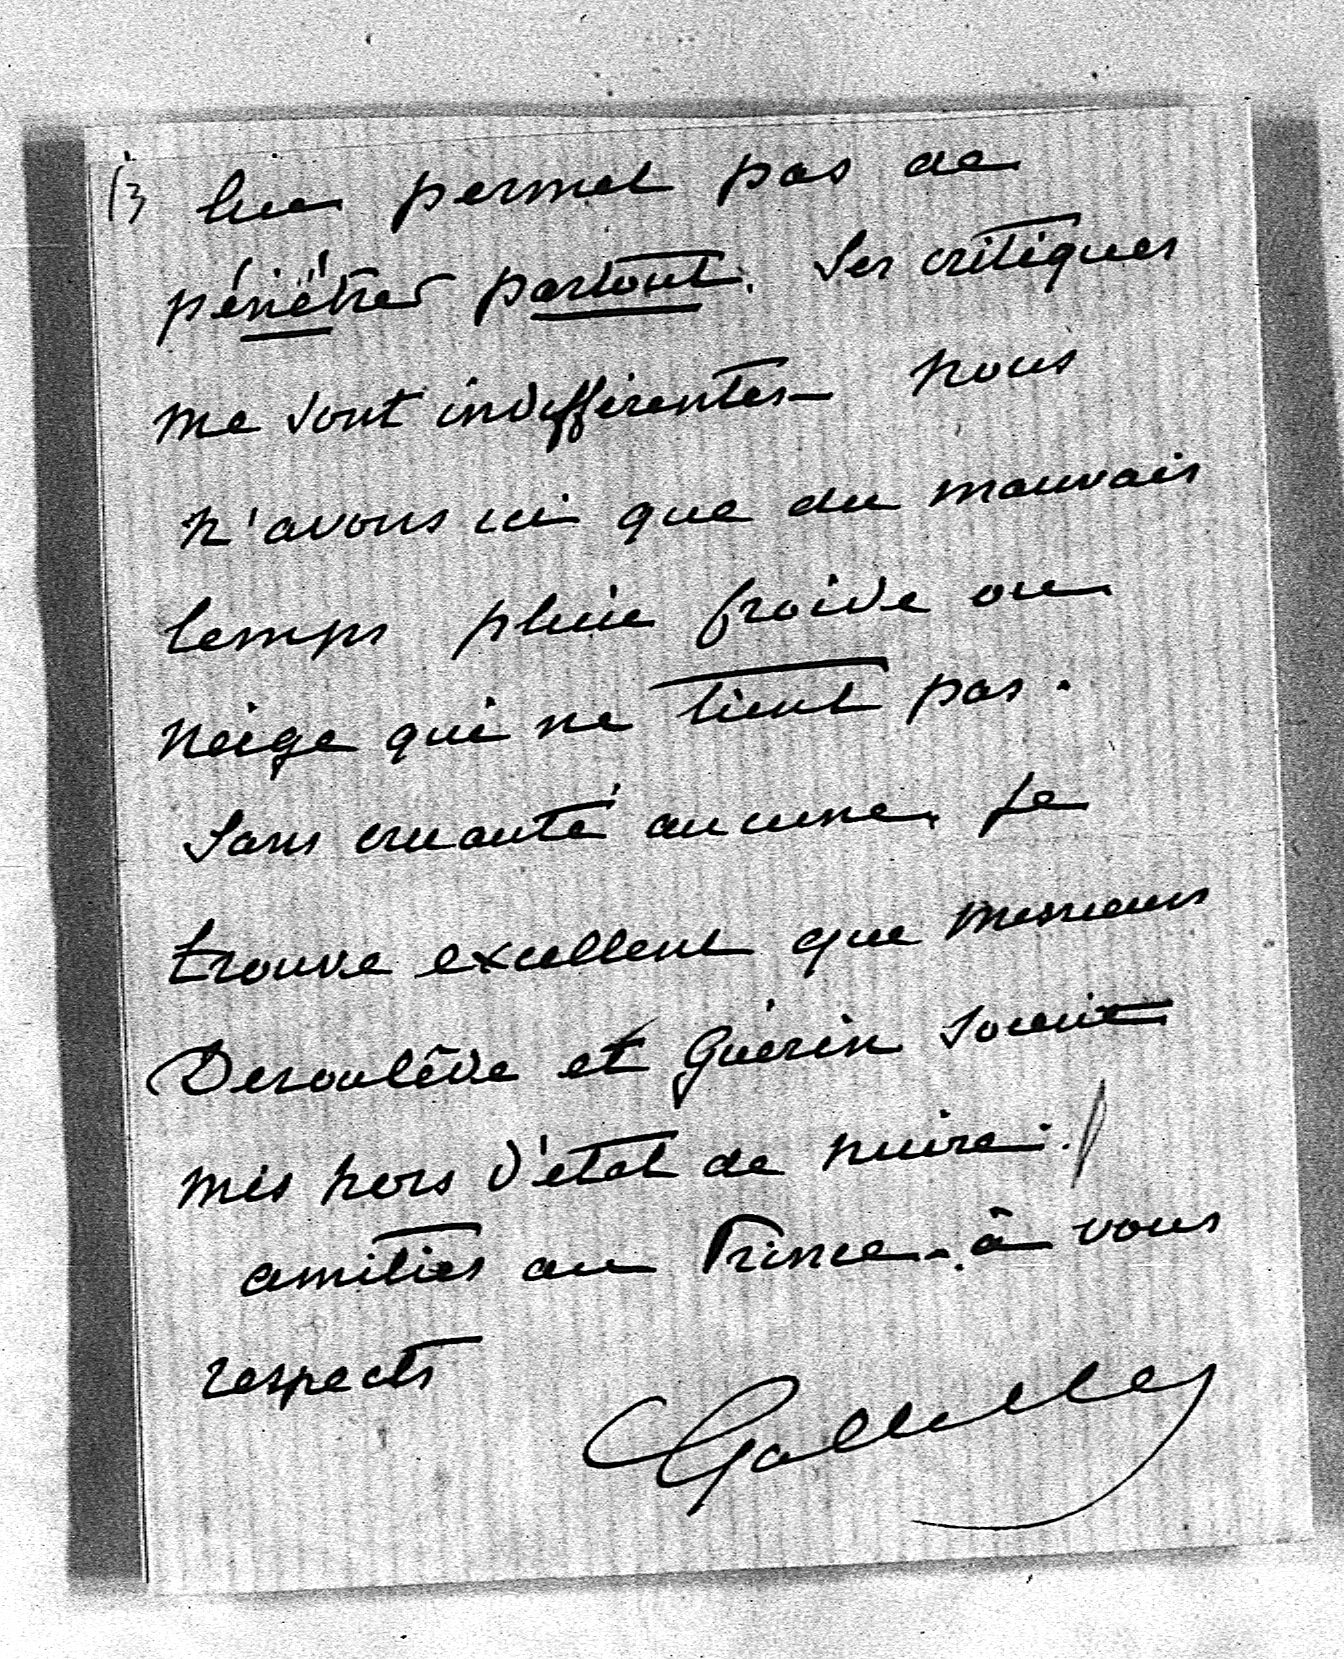 13 lui permet pas de
pénétrer partout. Ses critiques
me sont indifférentes – nous
n'avons ici que du mauvais
temps pluie froide ou
neige qui ne tient pas.
Sans cruauté aucune, je
trouve excellent que messieurs
Deroulède et Guérin soient
mis hors d'état de nuire.
amitiés au Prince. à vous
respects
Galliffet